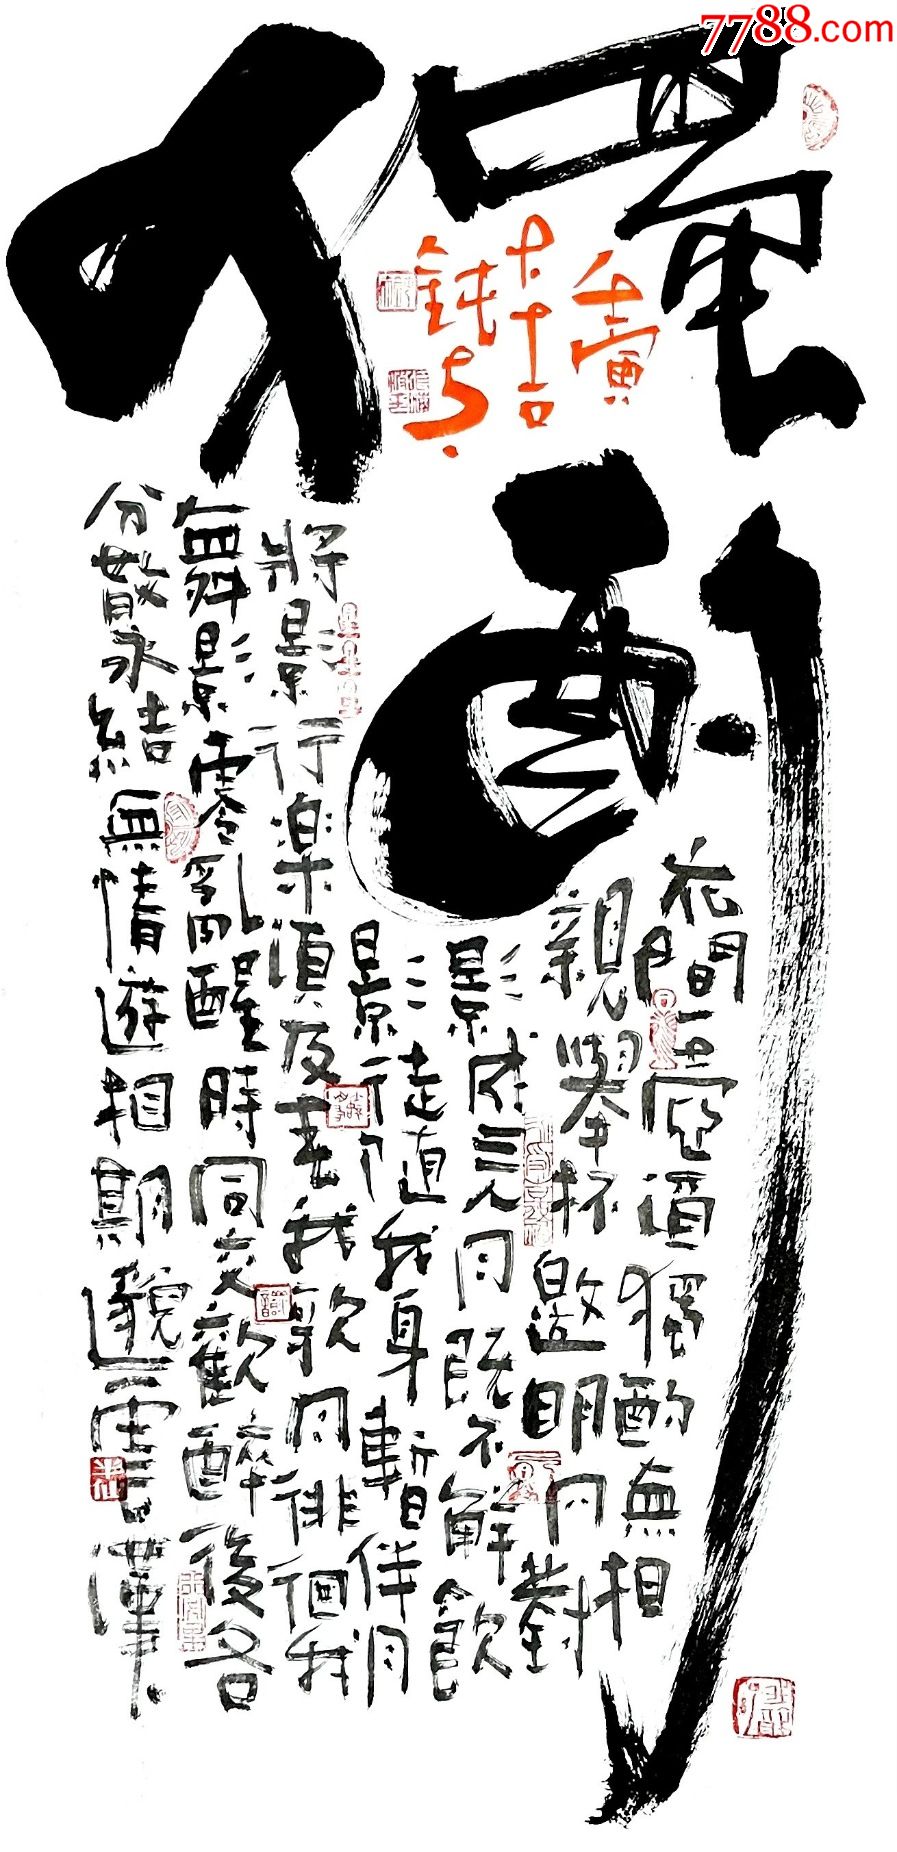 7788.com
獨酌
花間一壺酒獨酌無相
親舉杯邀明月對
影成三人月既不解飲
影徒隨我身暫伴月
將影行樂須及春我歌月徘徊我
舞影零亂醒時同交歡醉後各
分散永結無情遊相期邈雲漢
壬寅